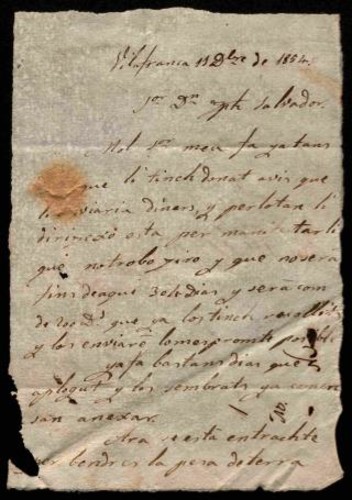 Vilafranca 13 Dbre de 1854
Sor Dn Jph Salvador.
Mol Sor meu fa ya tans
que li tinch donat avis que
li enviaria diners, y per lo tan li
dirigesco esta per manifestarli
que no trobo giro y que no sera
fins de aqui 3 o 4 dias y sera com
de 200 Ds que ya los tinch recullits
y los enviaré lo mes promte posible
ya fa bastans dias que
a plogut y los sembrats ya comen
san a nexar.
Ara se está
per bendrer la pesa de terra